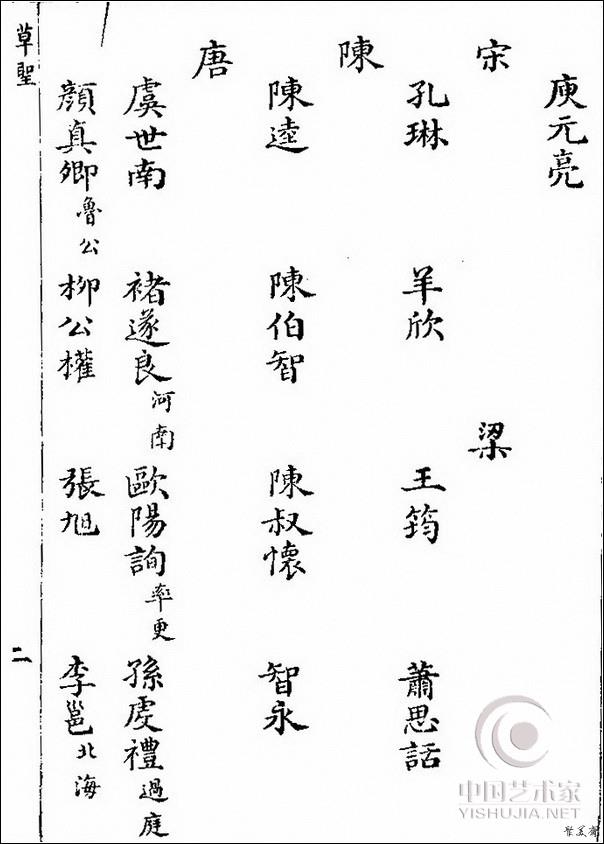 庾元亮
宋 梁
孔琳 羊欣 王筠 蕭思話
陳
陳逵 陳伯智 陳叔懷 智永
唐
虞世南 褚遂良河南 歐陽詢率更 孫虔禮過庭
顏真卿魯公 柳公權 張旭 李邕北海
草聖 二
中国艺术家
YISHUJIA.NET